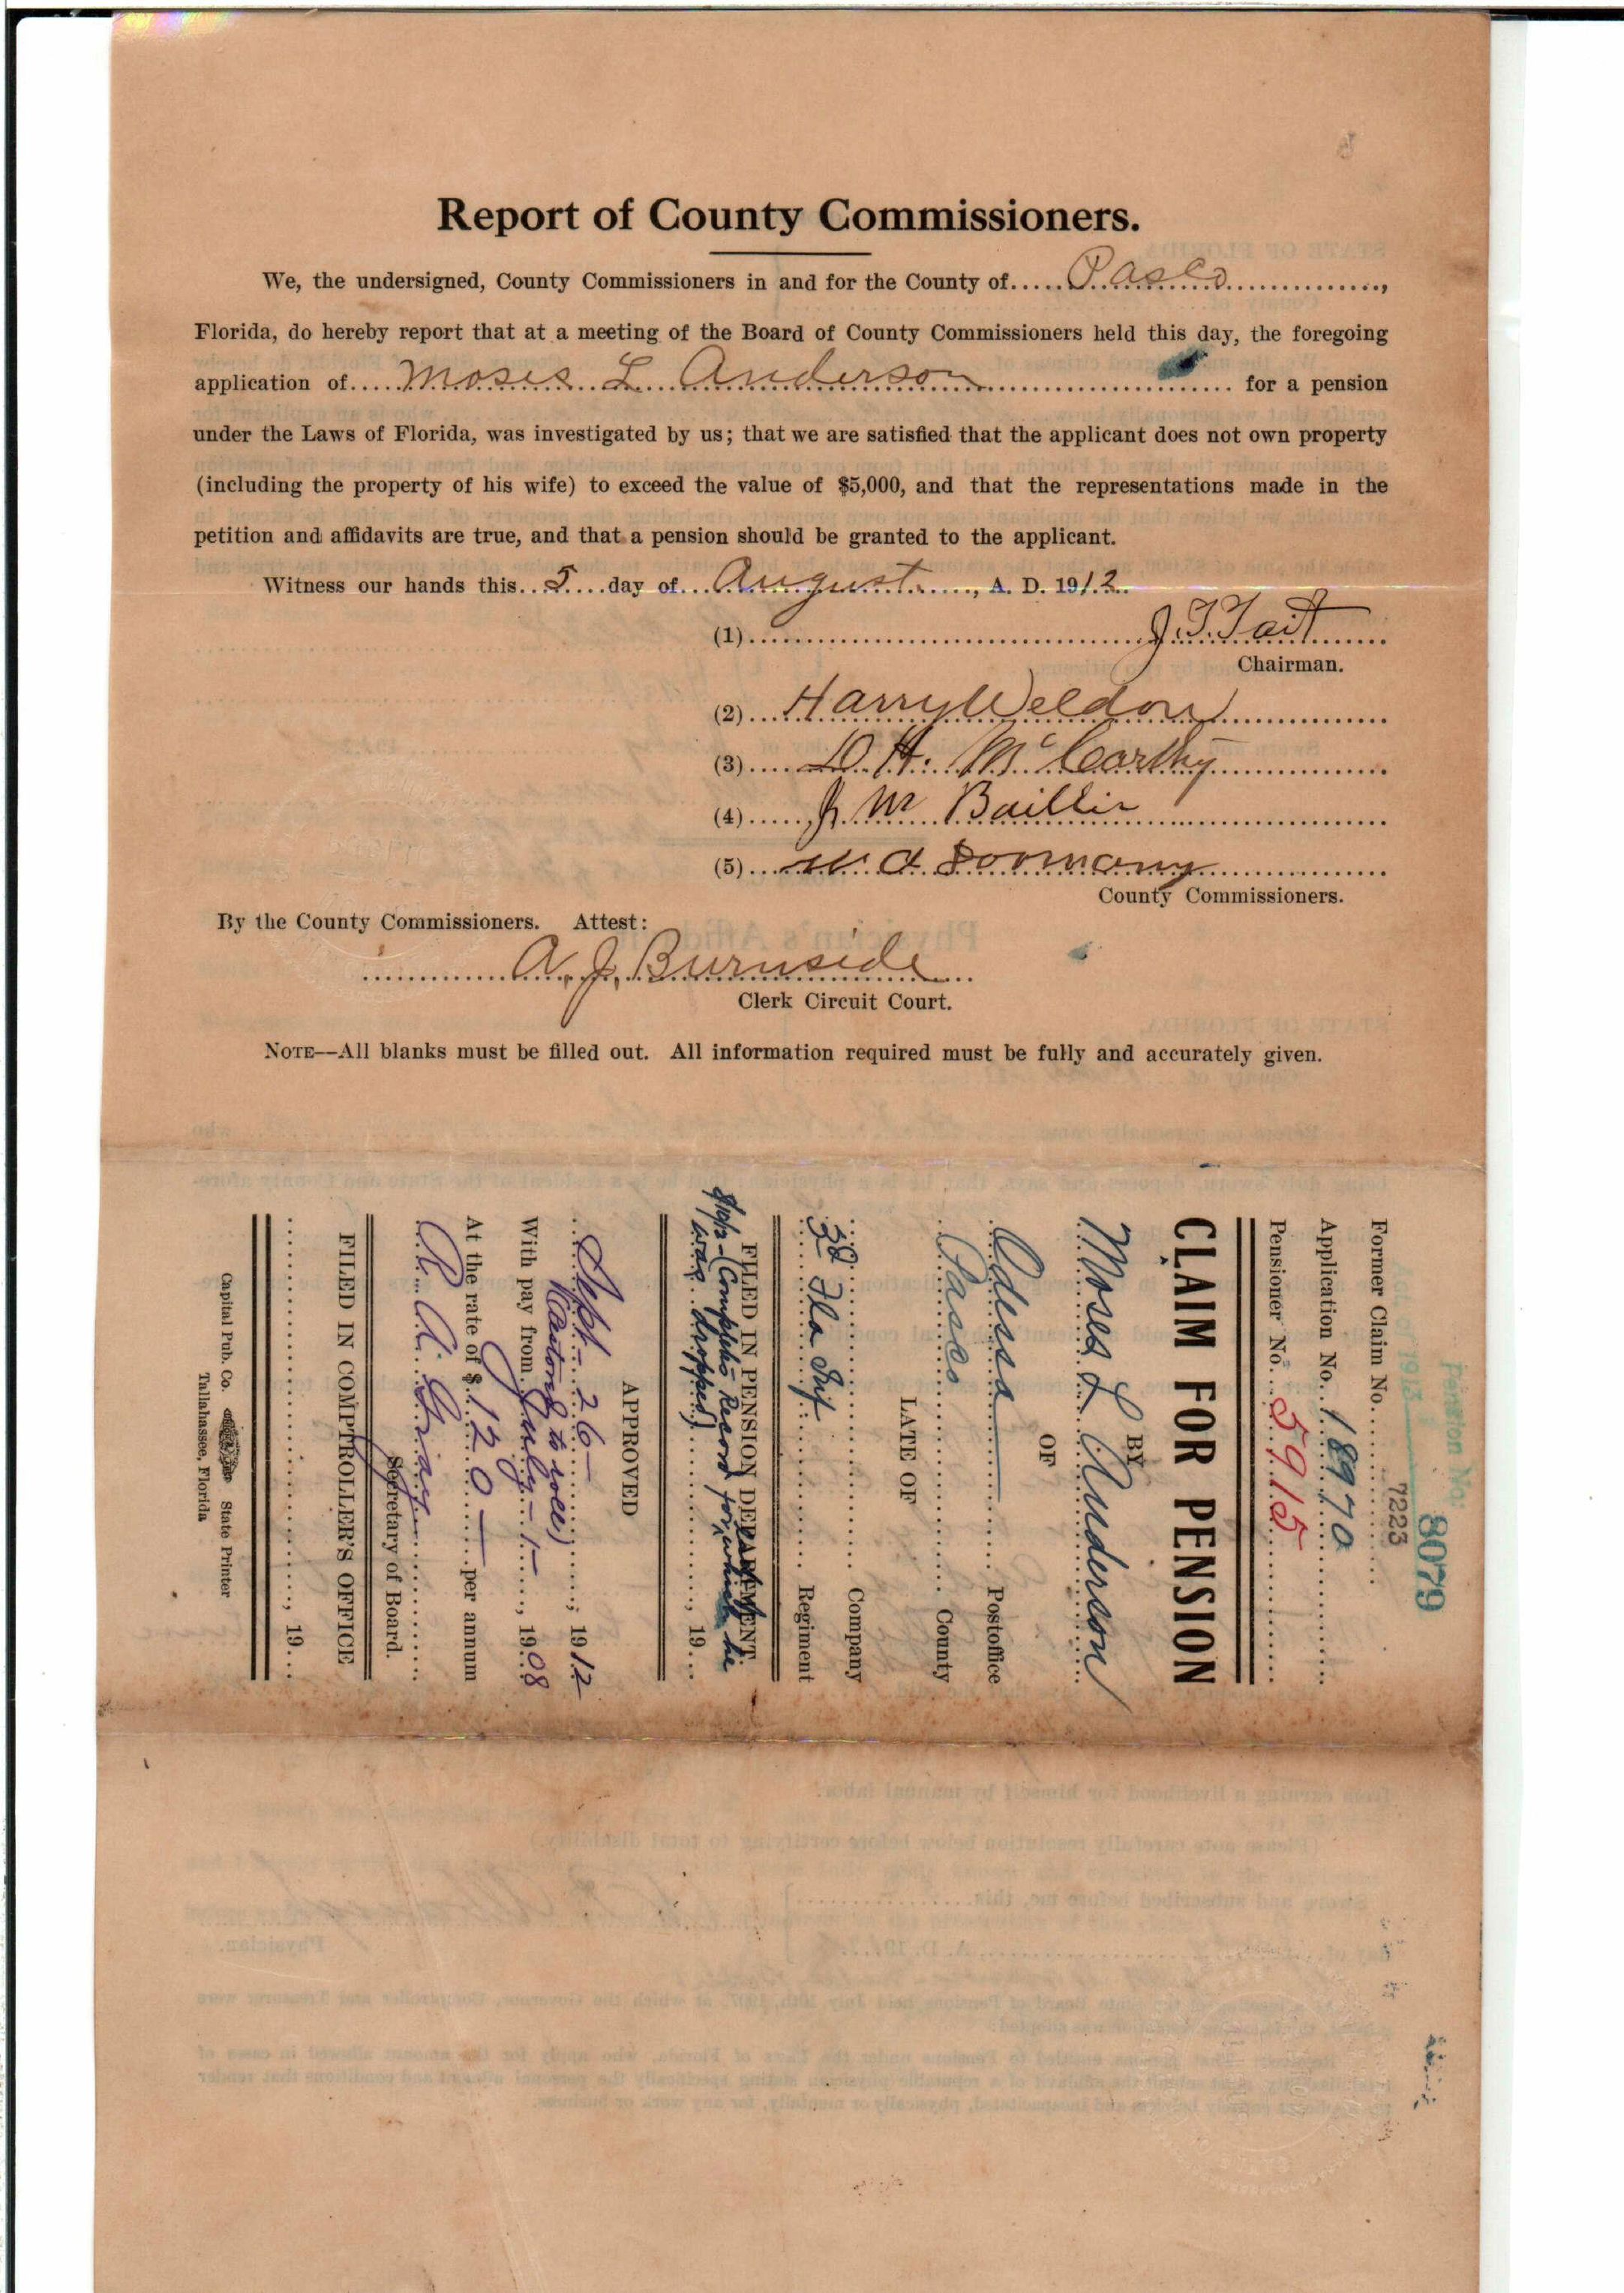 Report of County Commissioners.
We, the undersigned, County Commissioners in and for the County of.....Pasco...............,
Florida, do hereby report that at a meeting of the Board of County Commissioners held this day, the foregoing
application of....Moses L Anderson........................ for a pension
under the Laws of Florida, was investigated by us; that we are satisfied that the applicant does not own property
(including the property of his wife) to exceed the value of $5,000, and that the representations made in the
petition and affidavits are true, and that a pension should be granted to the applicant.
Witness our hands this..5....day of...August......., A. D. 1912..
(1)........................................J. T. Tait.......
Chairman.
(2)....Harry Weldon................
(3).....D. H. McCarthy................
(4)......J. M Baillie........................
(5)...................
County Commissioners.
By the County Commissioners. Attest:
..............A. J. Burnside...
Clerk Circuit Court.
NOTE--All blanks must be filled out. All information required must be fully and accurately given.
Pension No. 8079
Act of 1913
7223
Former Claim No..................
Application No..18970..............
Pensioner No...5915...............
CLAIM FOR PENSION
BY
Moses L Anderson
OF
Odessa........ Postoffice
Pasco............... County
LATE OF
.................... Company
3d Fla Inf............ Regiment
FILED IN PENSION DEPARTMENT
8/12/12 (Comptro Record for which he
was dropped)................, 19...
APPROVED
Sept - 26 -........, 1912
(Restored to roll)
With pay from July - 1 -...., 1908
At the rate of $.120 —.....per annum
Secretary of Board.
FILED IN COMPTROLLER'S OFFICE
........................................, 19...
Capital Pub. Co. State Printer
Tallahassee, Florida